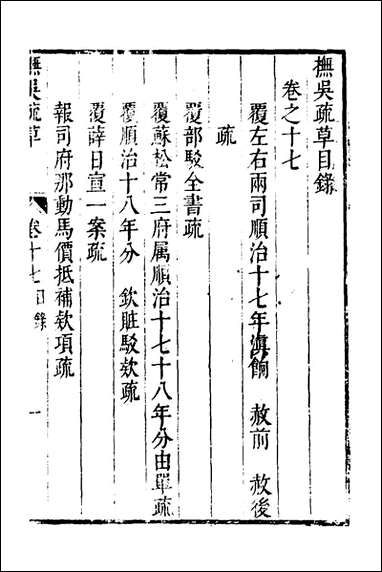 撫吳疏草目錄
卷之十七
覆左右兩司順治十七年滇餉　赦前　赦後
疏
覆部駁全書疏
覆蘇松常三府属順治十七十八年分由單疏
覆順治十八年分　欽贓駁欵疏
覆薛日宣一案疏
報司府那動馬價抵補欵項疏
撫吳疏草　卷十七目錄　一